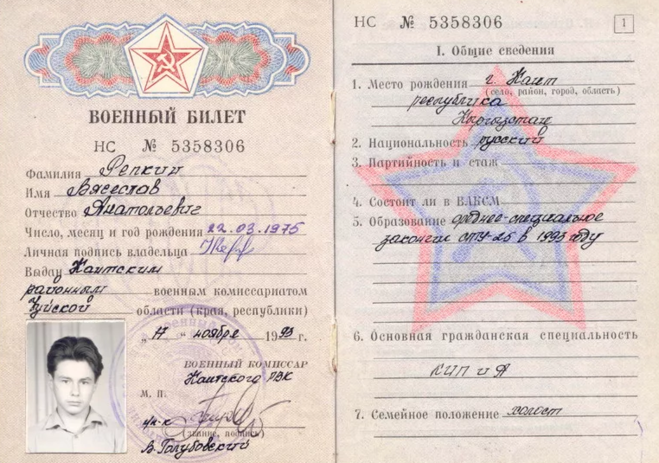 ВОЕННЫЙ БИЛЕТ
НС № 5358306
Фамилия Репкин
Имя Вячеслав
Отчество Анатольевич
Число, месяц и год рождения 22.03.1975
Личная подпись владельца
Выдан Кантским
районным военным комиссариатом
Чуйской области (края, республики)
„17" ноября 1993 г.
ВОЕННЫЙ КОМИССАР
Кантского РВК
М. П.
п/п-к
(звание, подпись)
В. Голубовский
НС № 5358306 1
I. Общие сведения
1. Место рождения г. Кант
(село, район, город, область)
республика
Кыргызстан
2. Национальность русский
3. Партийность и стаж
4. Состоит ли в ВЛКСМ
5. Образование средне-специальное
закончил СПТУ-25 в 1993 году
6. Основная гражданская специальность
КИП и А
7. Семейное положение холост